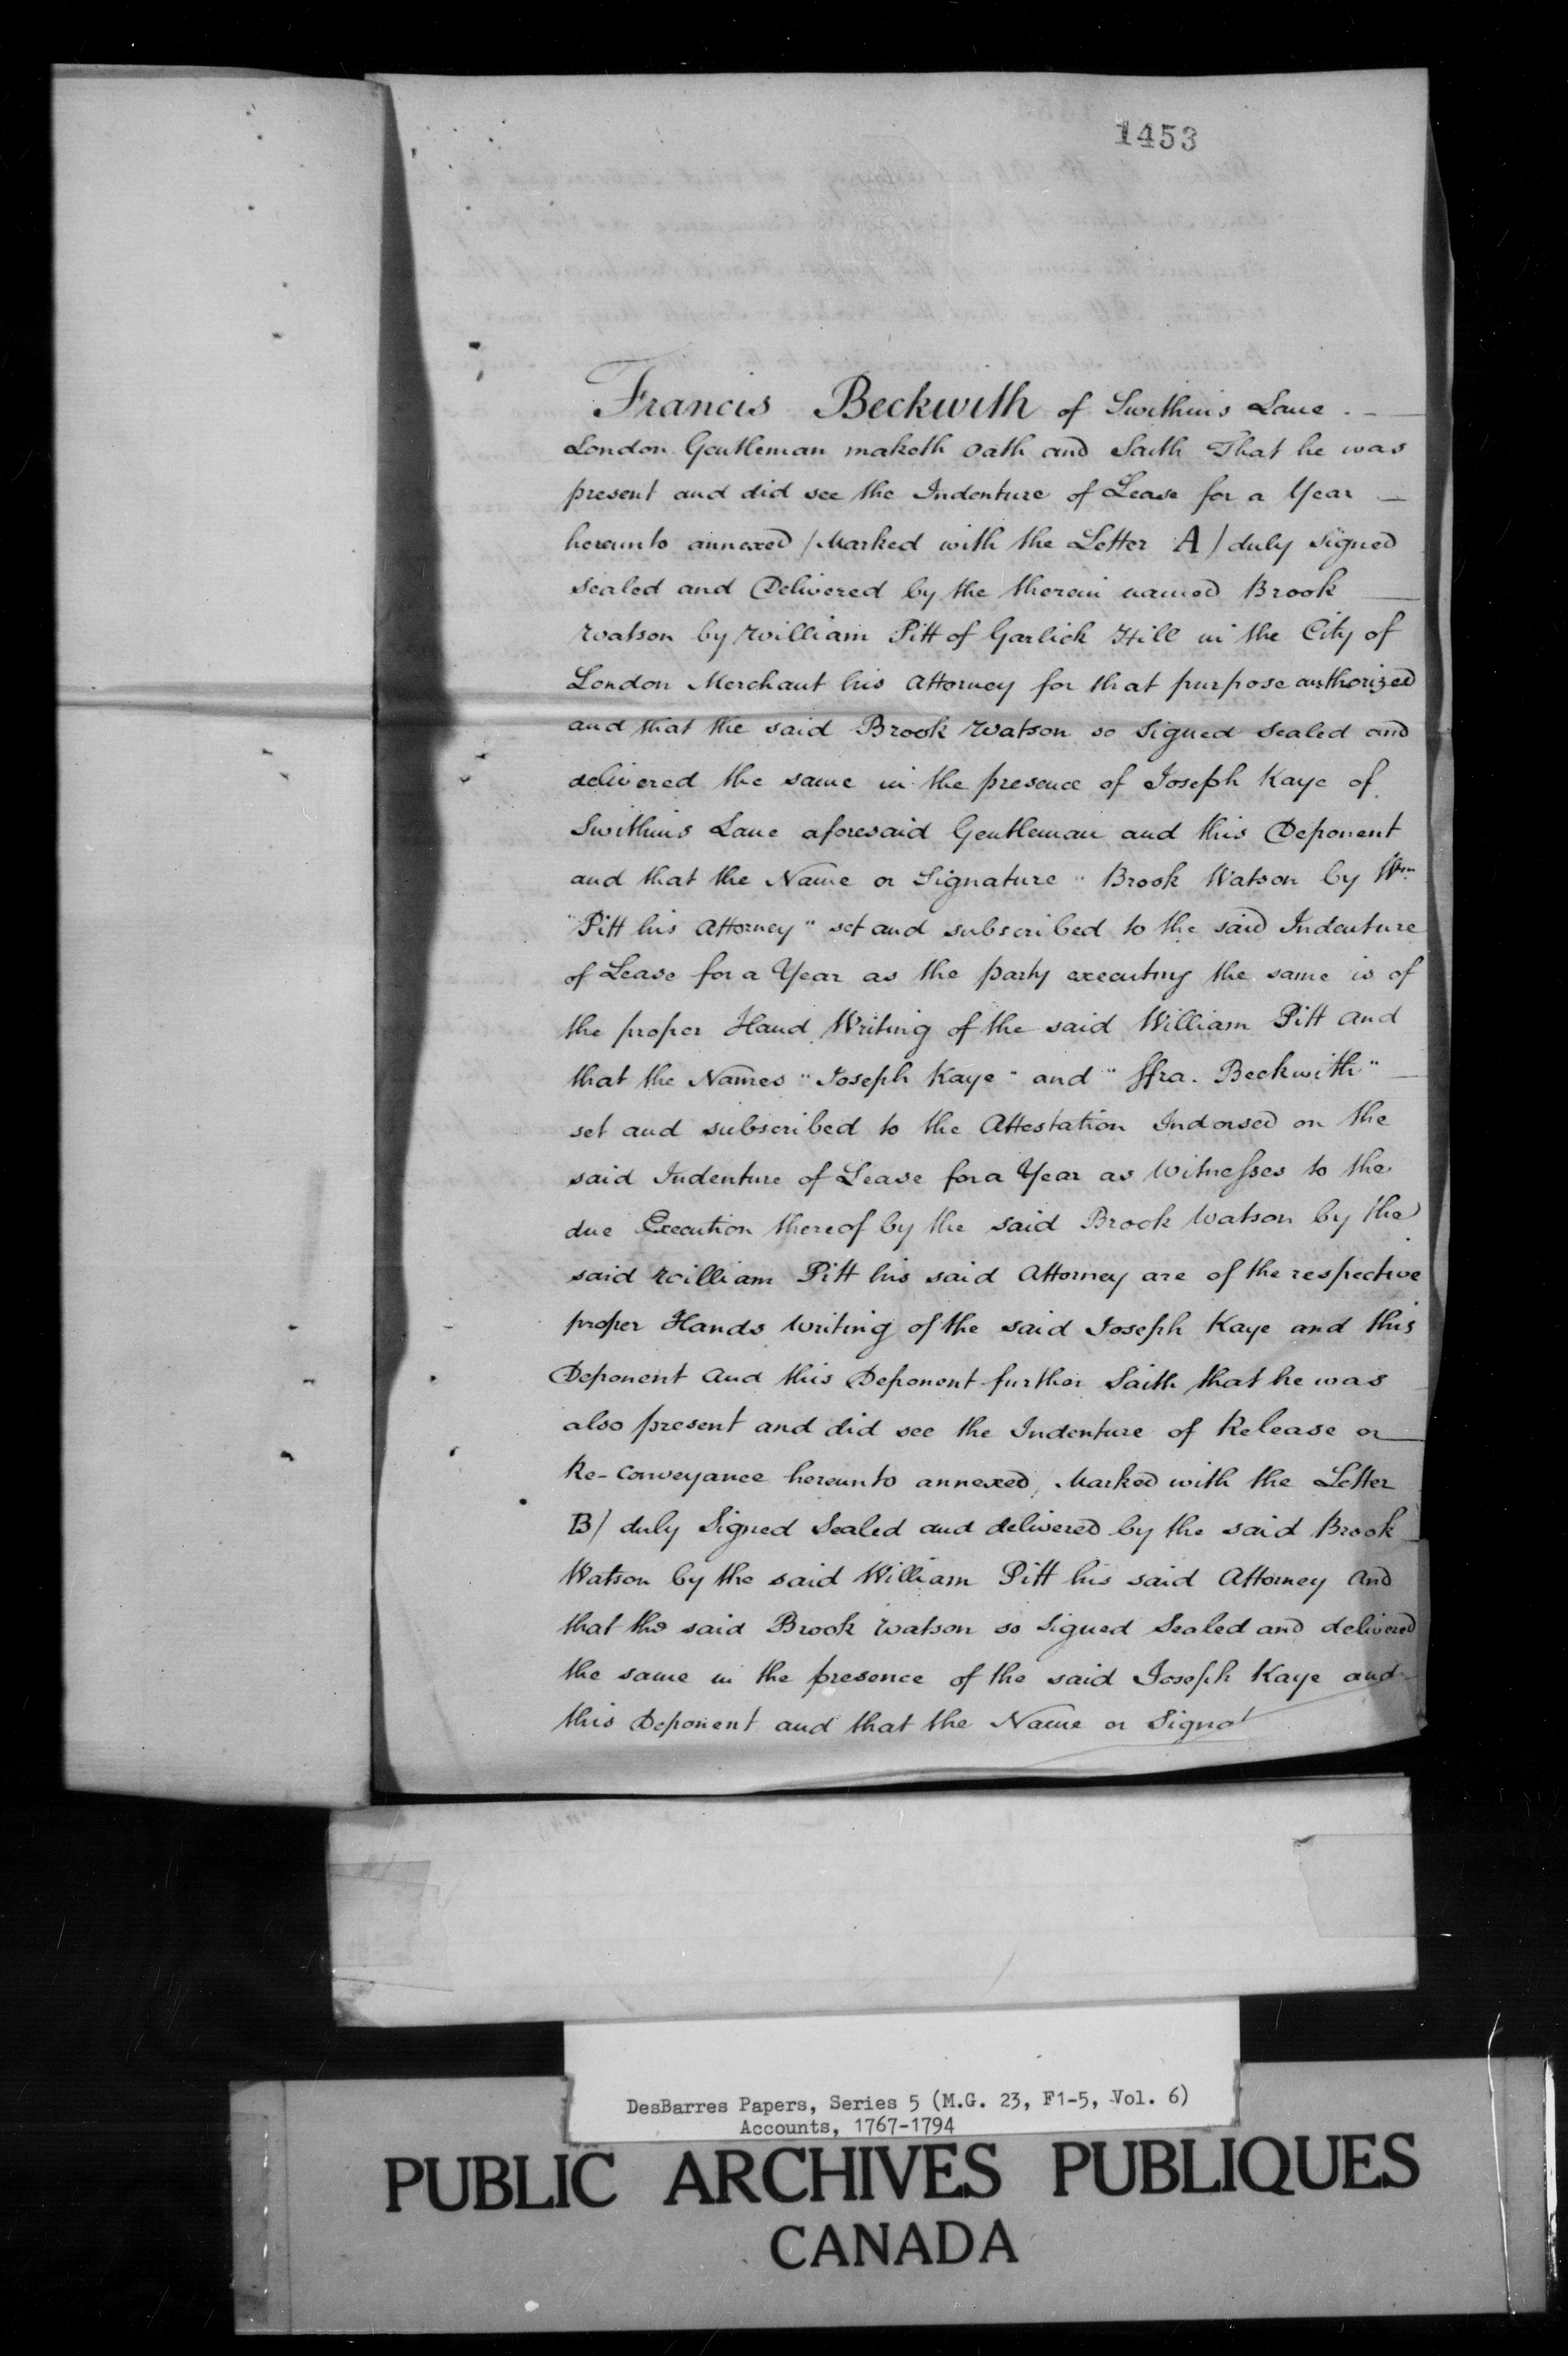 1453
Francis Beckwith of Swithin's Lane
London Gentleman maketh Oath and Saith That he was
present and did see the Indenture of Lease for a Year
hereunto annexed (Marked with the Letter A) duly signed
sealed and Delivered by the therein named Brook
Watson by William Pitt of Garlick Hill in the City of
London Merchant his Attorney for that purpose authorized
and that the said Brook Watson so Signed Sealed and
delivered the same in the presence of Joseph Kaye of
Swithins Lane aforesaid Gentleman and this Deponent
and that the Name or Signature "Brook Watson by Wm
"Pitt his Attorney" set and subscribed to the said Indenture
of Lease for a Year as the party executing the same is of
the proper Hand Writing of the said William Pitt and
that the Names "Joseph Kaye" and "ffra. Beckwith"
set and subscribed to the Attestation Indorsed on the
said Indenture of Lease for a Year as Witnesses to the
due Execution thereof by the said Brook Watson by the
said William Pitt his said Attorney are of the respective
proper Hands Writing of the said Joseph Kaye and this
Deponent And this Deponent further Saith that he was
also present and did see the Indenture of Release or
Re-Conveyance hereunto annexed (Marked with the Letter
B) duly Signed Sealed and delivered by the said Brook
Watson by the said William Pitt his said Attorney And
that the said Brook Watson so Signed Sealed and delivered
the same in the presence of the said Joseph Kaye and
this Deponent and that the Name or Signat
DesBarres Papers, Series 5 (M.G. 23, F1-5, Vol. 6)
Accounts, 1767-1794
PUBLIC ARCHIVES PUBLIQUES
CANADA